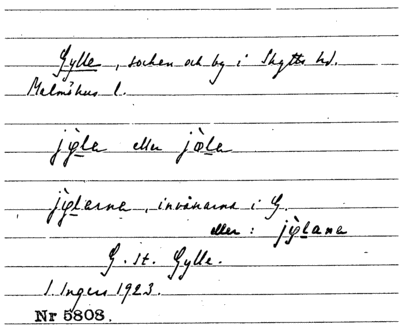 Gylle, socken och by i Skytts hd.
Malmöhus l.
jỳ̱la eller jø̱̀la
jỳlarna, invånarna i G.
eller: jỳlana
G. st. Gylle.
I. Ingers 1923.
Nr 5808.